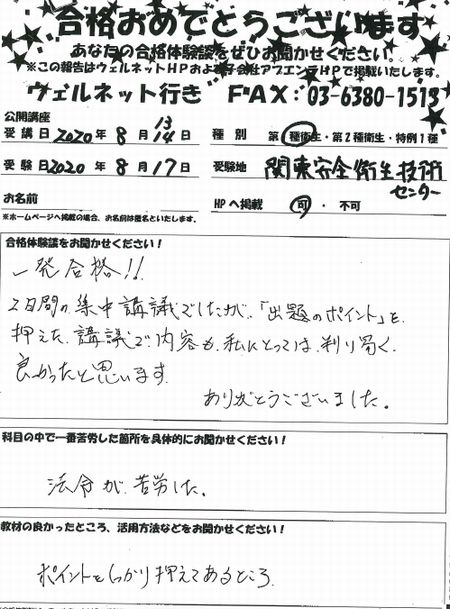 合格おめでとうございます
あなたの合格体験談をぜひお聞かせください。
※この報告はウェルネットHPおよび子会社アプエンテHPで掲載いたします。
ウェルネット行き FAX:03-6380-1515
公開講座
受講日 2020 年 8 月 13 14 日 種別 第1種衛生・第2種衛生・特例1種
受験日 2020 年 8 月 17 日 受験地 関東安全衛生技術
センター
お名前 HPへ掲載 可・不可
※ホームページへ掲載の場合、お名前は匿名といたします。
合格体験談をお聞かせください!
一発合格!!
2日間の集中講議でしたが、「出題のポイント」を
押えた講議で内容も、私にとっては、判り易く
良かったと思います。
ありがとうございました。
科目の中で一番苦労した箇所を具体的にお聞かせください!
法令が苦労した。
教材の良かったところ、活用方法などをお聞かせください!
ポイントをしっかり押えてあるところ